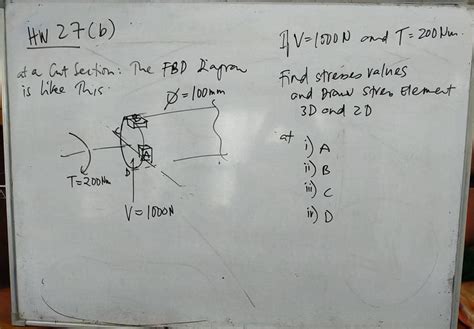 HW 27(b)
at a Cut Section: The FBD Diagram
is like This.
Ø=100mm
A
D
T=200Nm
V=1000N
If V=1000N and T=200Nm.
Find stresses values
and Draw stress Element
3D and 2D
at
i) A
ii) B
iii) C
iv) D